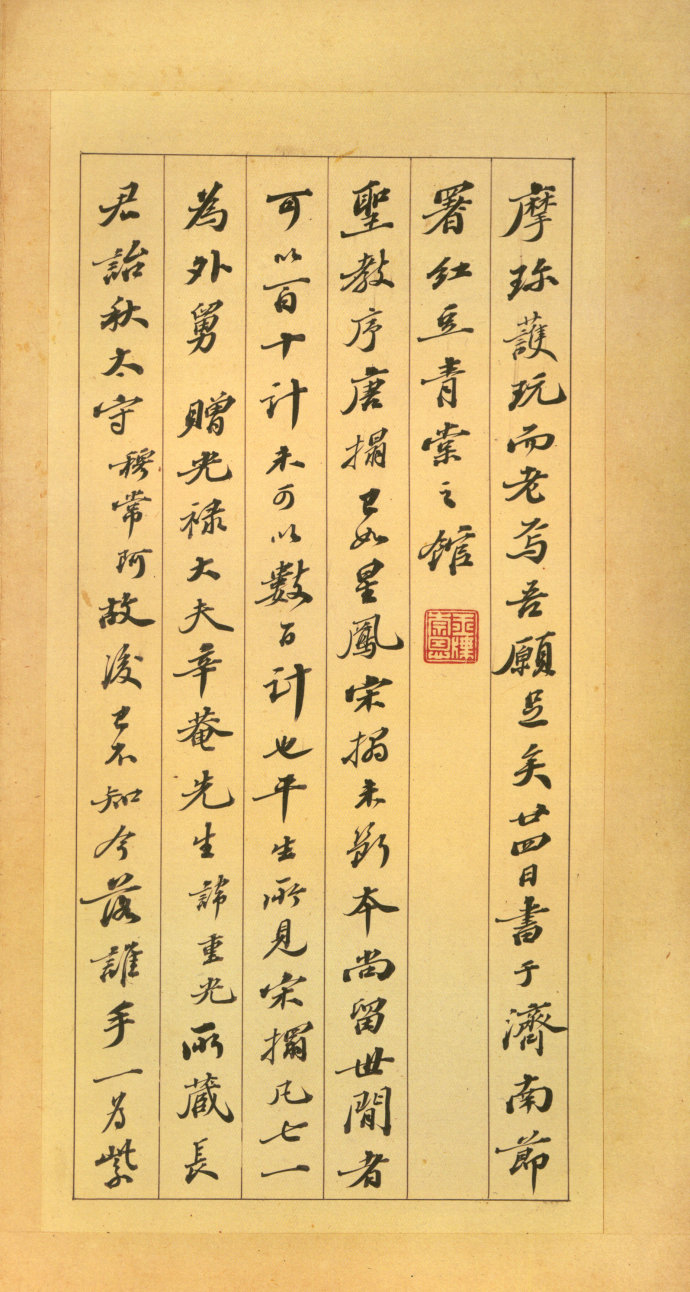 摩珎護玩而老焉吾願足矣廿四日書于濟南節
署紅豆青棠之館
聖教序唐搨已如星鳳宋搨未斷本尚留世間者
可以百十計未可以數百計也平生所見宋搨凡七一
為外舅 贈光祿大夫辛菴先生諱重光所藏長
君詒秋太守穆常阿故後已不知今落誰手一為紫